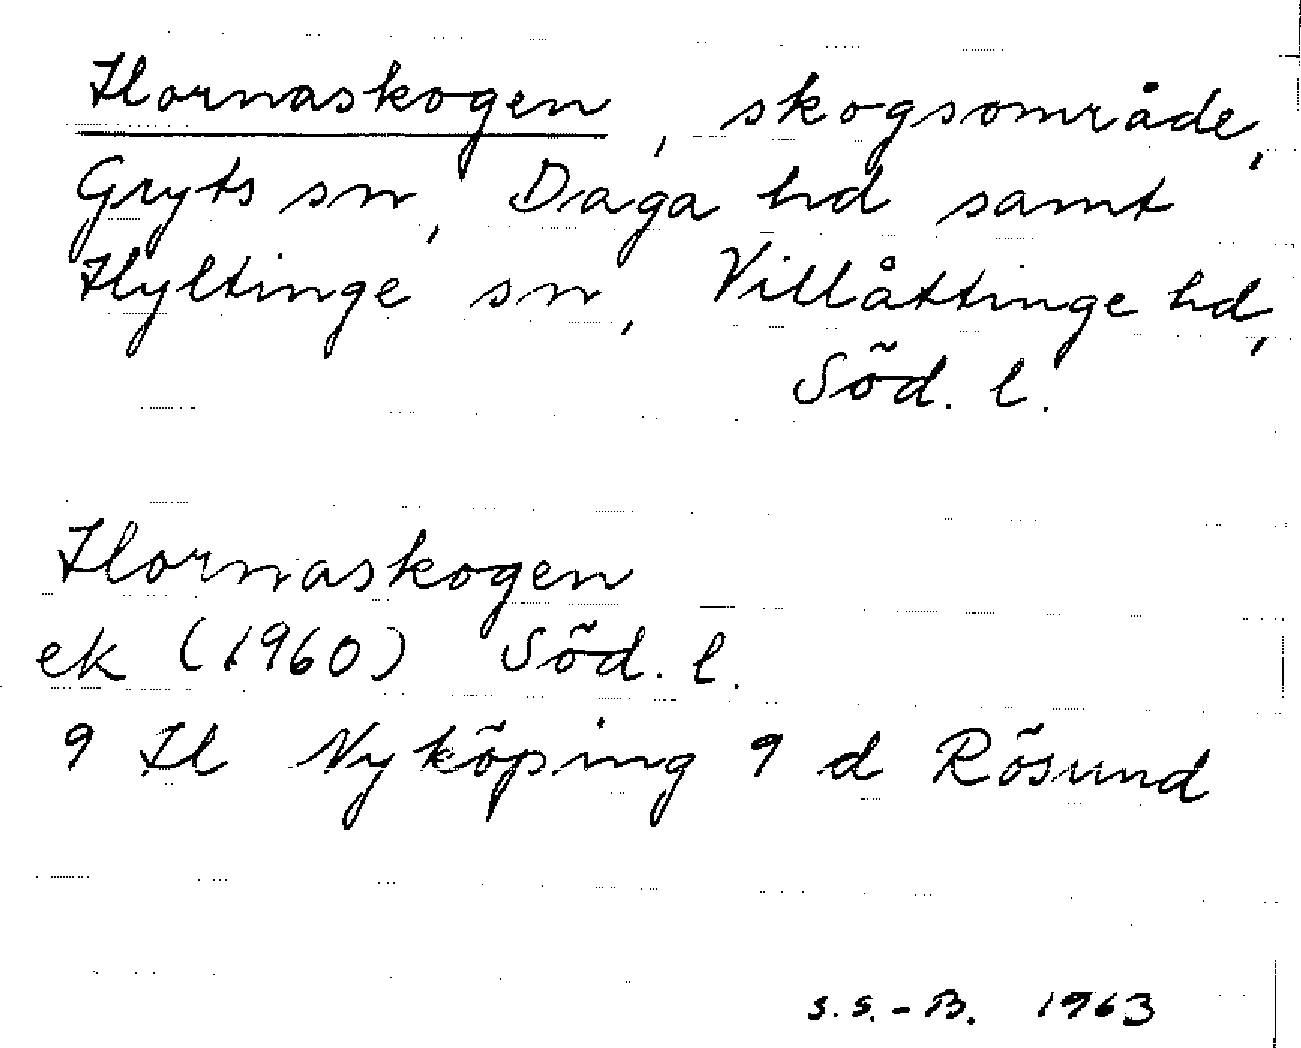 Hornaskogen, skogsområde,
Gryts sn, Daga hd samt
Hyltinge sn, Villåttinge hd,
Söd. l.
Hornaskogen
ek (1960) Söd. l.
9 H Nyköping 9 d Rösund
S.S.-B. 1963